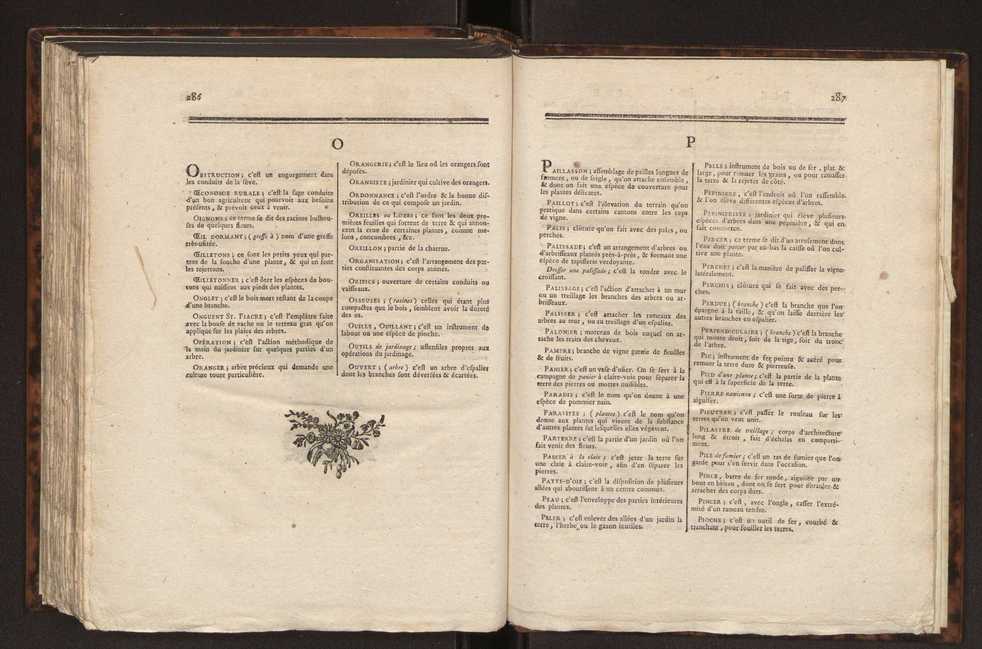 286
O
OBSTRUCTION ; c'est un engorgement dans
les conduits de la sève.
ŒCONOMIE RURALE ; c'est la sage conduite
d'un bon agriculteur qui pourvoit aux besoins
présents, & prévoit ceux à venir.
OIGNONS ; ce terme se dit des racines bulbeu-
ses de quelques fleurs.
ŒIL DORMANT ; ( greffe à ) nom d'une greffe
très-usitée.
ŒILLETONS ; ce sont les petits yeux qui par-
tent de la souche d'une plante, & qui en sont
les rejettons.
ŒILLETONNER ; c'est ôter les espèces de bou-
tures qui naissent aux pieds des plantes.
ONGLET ; c'est le bois mort restant de la coupe
d'une branche.
ONGUENT ST. FIACRE ; c'est l'emplâtre faite
avec la bouse de vache ou le terreau gras qu'on
applique sur les plaies des arbres.
OPÉRATION ; c'est l'action méthodique de
la main du jardinier sur quelques parties d'un
arbre.
ORANGER ; arbre précieux qui demande une
culture toute particulière.
ORANGERIE ; c'est le lieu où les orangers sont
déposés.
ORANGISTE ; jardinier qui cultive des orangers.
ORDONNANCE ; c'est l'ordre & la bonne dis-
tribution de ce qui compose un jardin.
OREILLES ou LOBES ; ce sont les deux pre-
mières feuilles qui sortent de terre & qui annon-
cent la crue de certaines plantes, comme me-
lons, concombres, &c.
OREILLON ; partie de la charrue.
ORGANISATION ; c'est l'arrangement des par-
ties constituantes des corps animés.
ORIFICE ; ouverture de certains conduits ou
vaisseaux.
OSSEUSES ; ( racines ) celles qui étant plus
compactes que le bois, semblent avoir la dureté
des os.
OUILLE, OUILLANT ; c'est un instrument de
labour ou une espèce de pioche.
OUTILS de jardinage ; ustensiles propres aux
opérations du jardinage.
OUVERT ; ( arbre ) c'est un arbre d'espalier
dont les branches sont déversées & écartées.
287
P
PAILLASSON ; assemblage de pailles longues de
froment, ou de seigle, qu'on attache ensemble,
& dont on fait une espèce de couverture pour
les plantes délicates.
PAILLOT ; c'est l'élévation du terrein qu'on
pratique dans certains cantons entre les ceps
de vigne.
PALIS ; clôture qu'on fait avec des palis, ou
perches.
PALISSADE ; c'est un arrangement d'arbres ou
d'arbrisseaux plantés près-à-près, & formant une
espèce de tapisserie verdoyante.
Dresser une palissade ; c'est la tondre avec le
croissant.
PALISSAGE ; c'est l'action d'attacher à un mur
ou un treillage les branches des arbres ou ar-
brisseaux.
PALISSER ; c'est attacher les rameaux des
arbres au mur, ou au treillage d'un espalier.
PALONIER ; morceau de bois auquel on at-
tache les traits des chevaux.
PAMPRE ; branche de vigne garnie de feuilles
& de fruits.
PANIER ; c'est un vase d'osier. On se sert à la
campagne de panier à claire-voie pour séparer la
terre des pierres ou mottes nuisibles.
PARADIS ; c'est le nom qu'on donne à une
espèce de pommier nain.
PARASITES ; ( plantes ) c'est le nom qu'on
donne aux plantes qui vivent de la substance
d'autres plantes sur lesquelles elles végètent.
PARTERRE ; c'est la partie d'un jardin où l'on
fait venir des fleurs.
PASSER à la claie ; c'est jeter la terre sur
une claie à claire-voie, afin d'en séparer les
pierres.
PATTE-D'OIE ; c'est la disposition de plusieurs
allées qui aboutissent à un centre commun.
PEAU ; c'est l'enveloppe des parties intérieures
des plantes.
PELER ; c'est enlever des allées d'un jardin la
terre, l'herbe, ou le gazon inutiles.
PELLE ; instrument de bois ou de fer, plat &
large, pour remuer les grains, ou pour ramasser
la terre & la rejeter de côté.
PÉPINIÈRE, c'est l'endroit où l'on rassemble
& l'on élève différentes espèces d'arbres.
PÉPINIÉRISTE ; jardinier qui élève plusieurs
espèces d'arbres dans une pépinière, & qui en
fait commerce.
PERCER ; ce terme se dit d'un arrosement dont
l'eau doit percer par en-bas la caisse où l'on cul-
tive une plante.
PERCHÉE ; c'est la manière de palisser la vigne
latéralement.
PERCHIS ; clôture qui se fait avec des per-
ches.
PERDUE ; ( branche ) c'est la branche que l'on
épargne à la taille, & qu'on laisse derrière les
autres branches en espalier.
PERPENDICULAIRE ; ( branche ) c'est la branche
qui monte droit, soit de la tige, soit du tronc
de l'arbre.
PIC ; instrument de fer pointu & acéré pour
remuer la terre dure & pierreuse.
PIED d'une plante ; c'est la partie de la plante
qui est à la superficie de la terre.
PIERRE ; c'est une sorte de pierre à
aiguiser.
; c'est passer le rouleau sur les
terres qu'on veut unir.
PILASTRE de treillage ; corps d'architecture
long & étroit, fait d'échalas en comparti-
ment.
PILE de fumier ; c'est un tas de fumier que l'on
garde pour s'en servir dans l'occasion.
PINCE, barre de fer ronde, aiguisée par un
bout en biseau, dont on se sert pour ébranler &
arracher des corps durs.
PINCER ; c'est, avec l'ongle, casser l'extré-
mité d'un rameau tendre.
PIOCHE ; c'est un outil de fer, courbé &
tranchant, pour fouiller les terres.